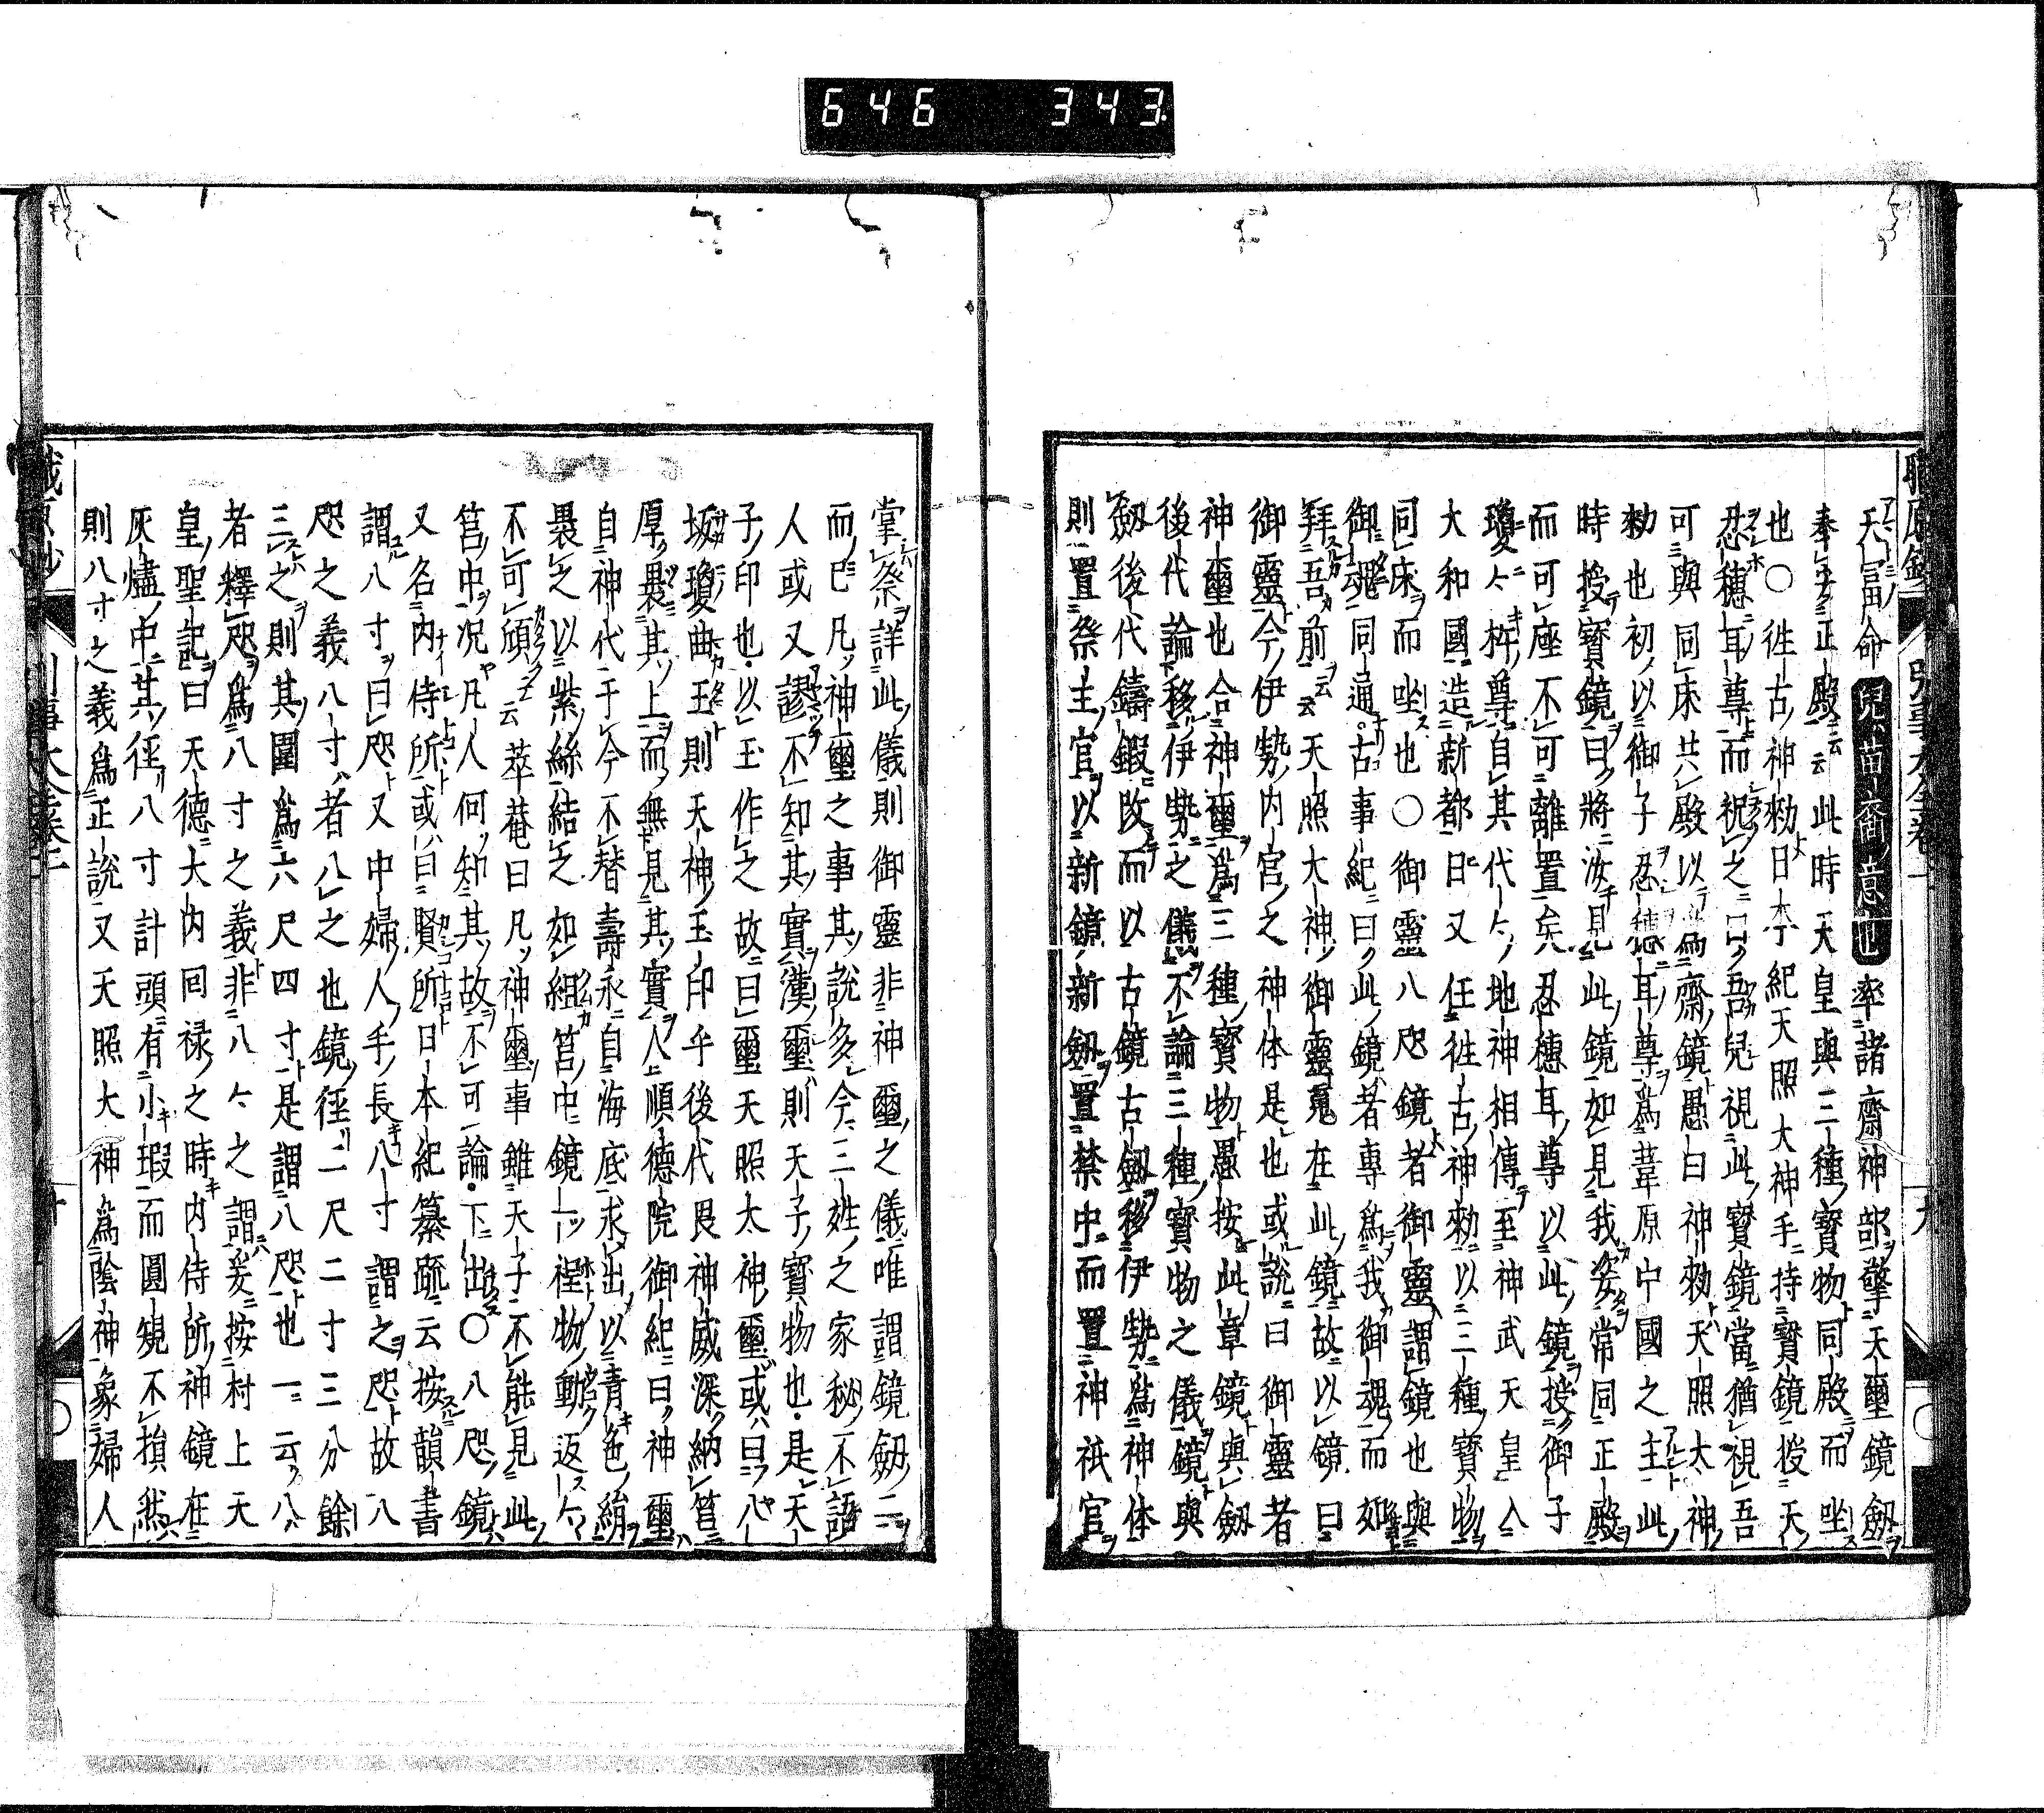 646 343
天富命兒苗裔意也率諸齋神部擎天璽鏡劔
奉安正殿云云此時天皇與三種寶物同殿而坐
也○徃古神勑日本紀天照大神手持寶鏡授天
忍穗耳尊而祝之曰吾兒視此寶鏡當猶視吾
可與同床共殿以爲齋鏡愚曰神勑天照太神
勑也初以御子忍穗耳尊爲葦原中國之主此
時授寶鏡曰將汝見此鏡如見我姿常同正殿
而可座不可離置矣忍穗耳尊以此鏡授御子
瓊々杵尊自其代々地神相傳至神武天皇人
大和國造新都日又任徃古神勑以三種寶物
同床而坐也○御靈八咫鏡者御靈謂鏡也與
御魂同通古事紀曰此鏡者專爲我御魂而如
拜吾前云云天照大神御靈寬在此鏡故以鏡曰
御靈今伊勢内宮之神体是也或說曰御靈者
神璽也合神璽爲三種寶物愚按此章鏡與劔
後代論移伊勢之儀不論三種寶物之儀鏡與
劔後代鑄鍜改而以古鏡古劔移伊勢爲神体
則置祭主官以新鏡新劔置禁中而置神祇官
掌祭詳此儀則御靈非神璽之儀唯謂鏡劔二
而已凡神璽之事其說多今三姓之家秘不語
人或又謬不知其實漢璽則天子寶物也是天
子印也以玉作之故曰璽天照太神璽或曰八
坂瓊曲玉則天神玉印乎後代畏神威深納筥
厚裹其上而無見其實人順德院御紀曰神璽
自神代于今不替壽永自海底求出以青色絹
裹之以紫絲結之如組筥中鏡一程物動返々
不可傾云萃菴曰凡神璽事雖天子不能見此
筥中况凡人何知其故不可論下出○八咫鏡
又名内侍所或曰賢所日本紀纂疏云按韻書
謂八寸曰咫又中婦人手長八寸謂之咫故八
咫之義八寸者八之也鏡徑一尺二寸三分餘
三之則其圍爲六尺四寸是謂八咫也一云八
者釋咫爲八寸之義非八々之謂妄按村上天
皇聖記曰天德大内囘祿之時内侍所神鏡在
灰燼中其徑八寸計頭有小瑕而圓䂓不損然
則八寸之義爲正說又天照大神爲陰神象婦人